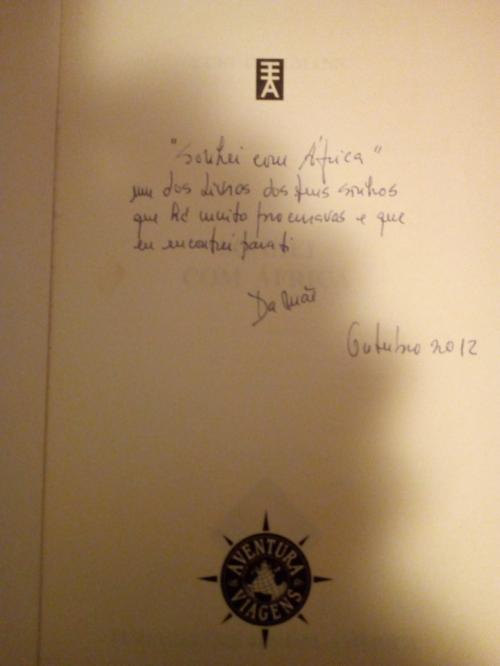 "Sonhei com África"
um dos livros dos teus sonhos
que há muito procuravas e que
eu encontrei para ti
Da Mãe
Outubro 2012
COM ÁFRICA
AVENTURA
VIAGENS